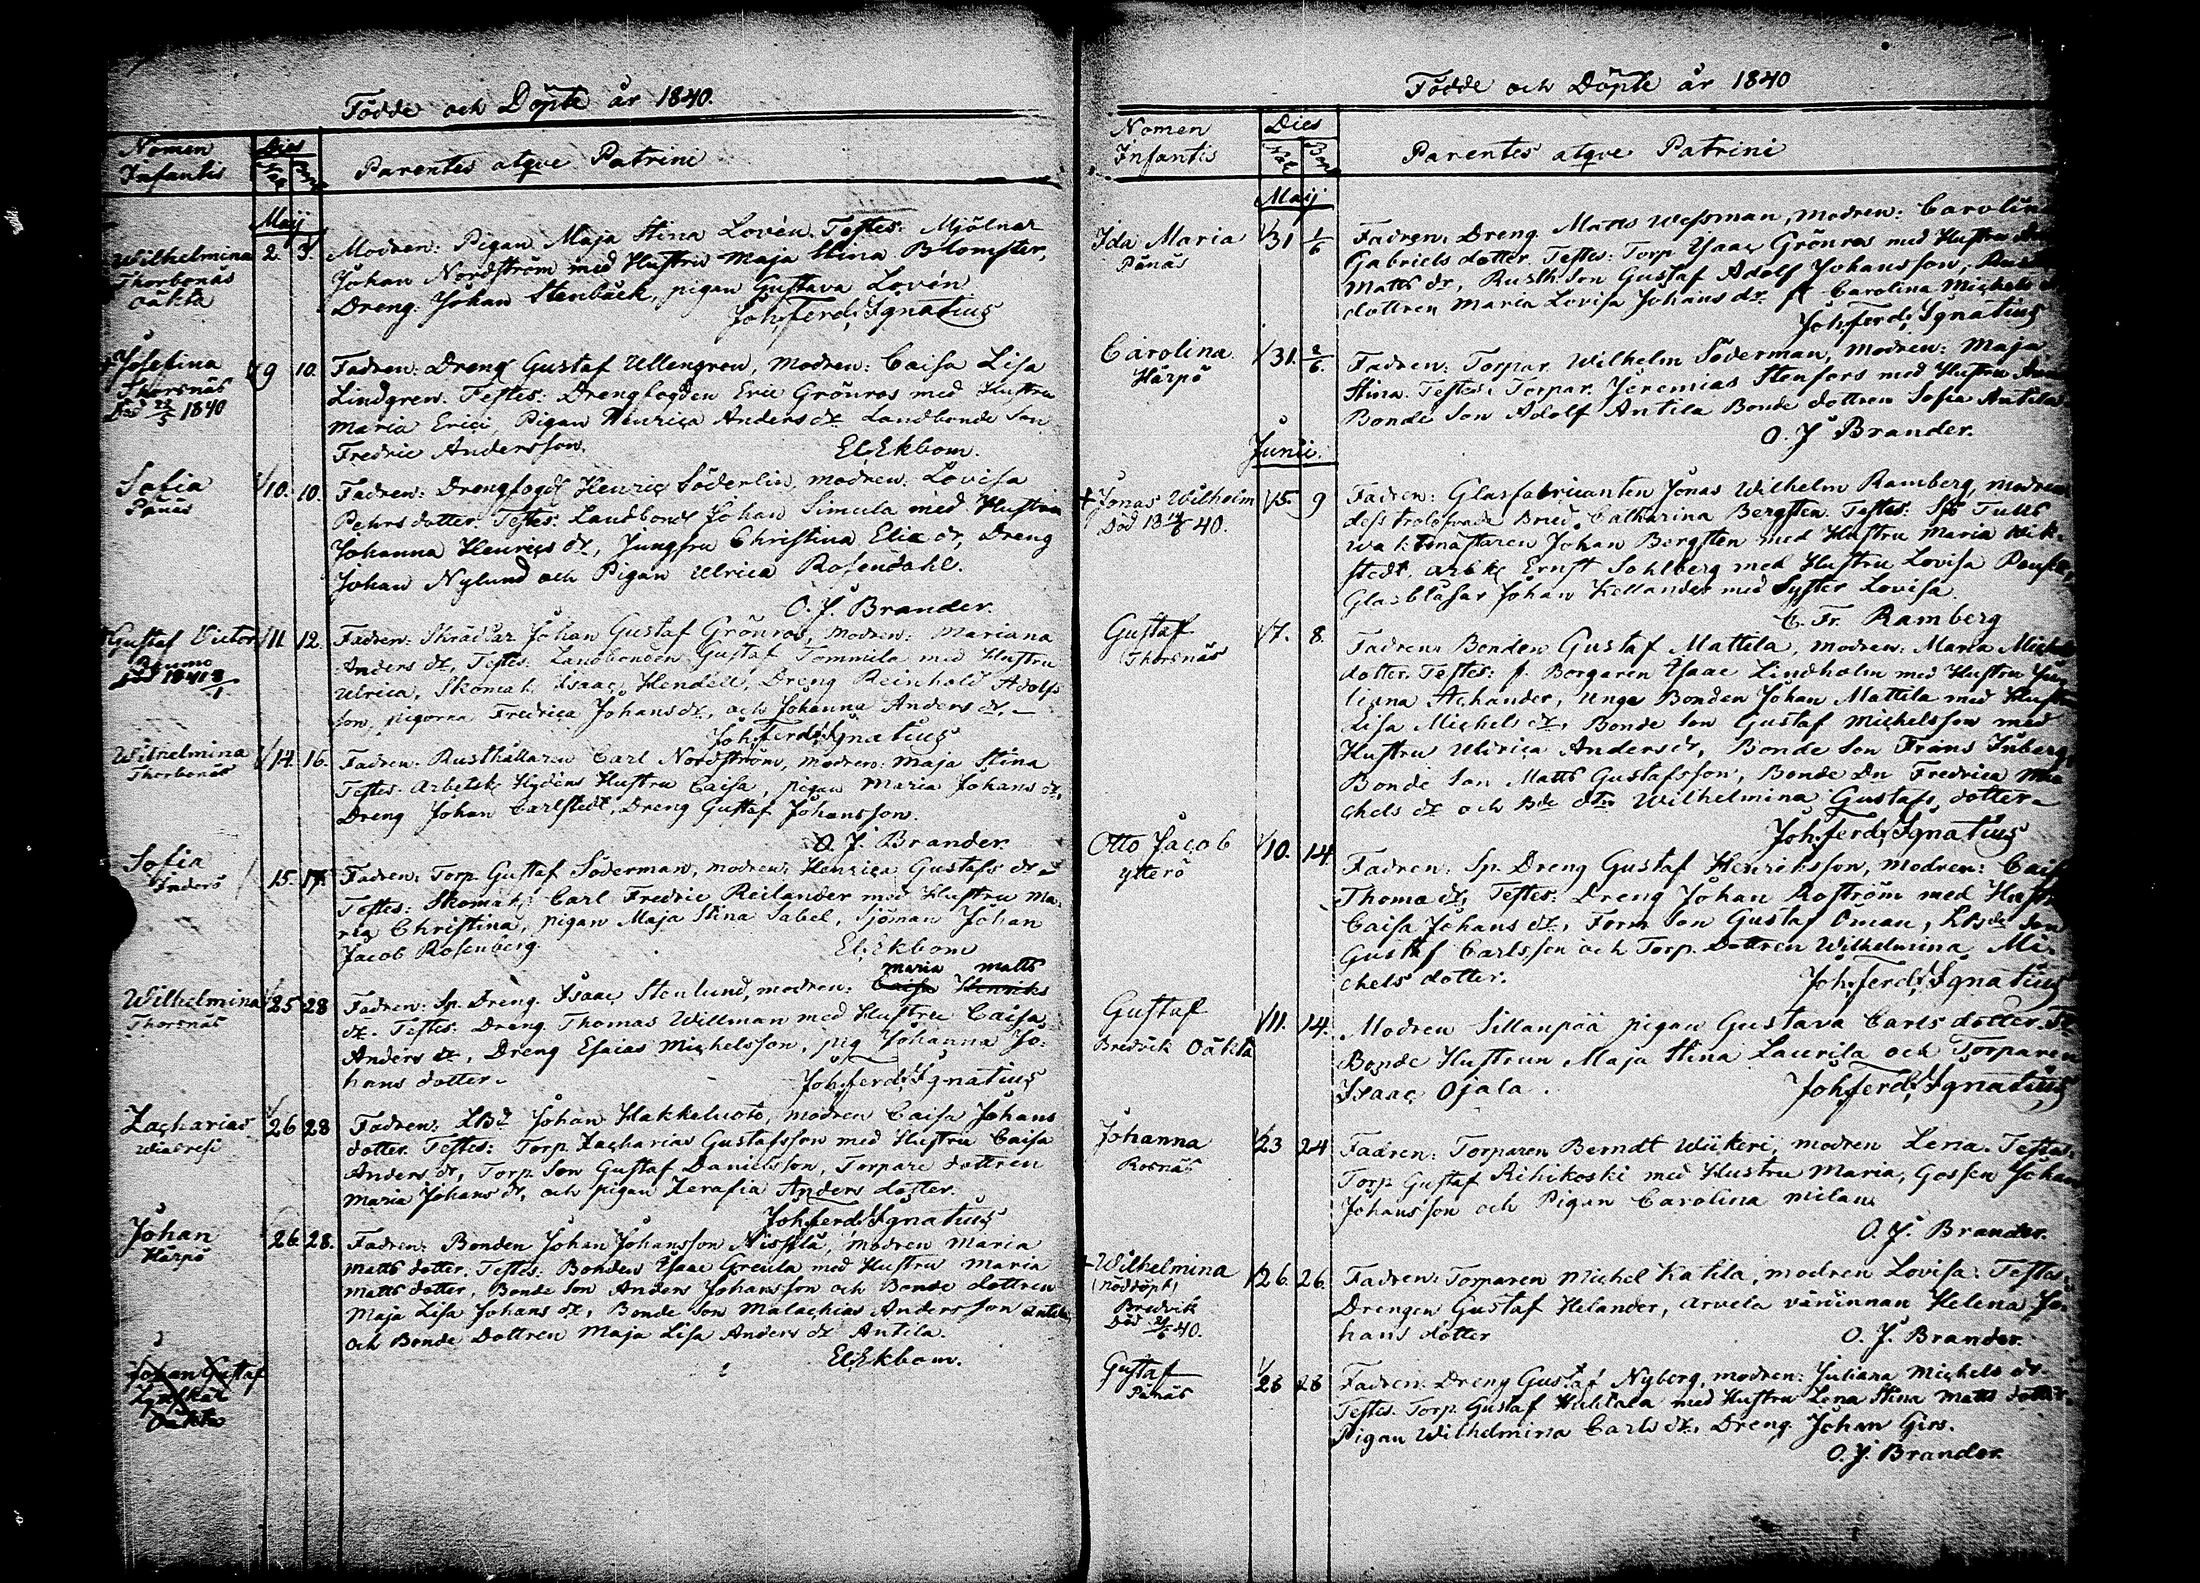 Födde och Döpte år 1840.
Nomen Infantis
Dies
Nat Bapt
Parentes atqve Patrini
Maij
Wilhelmina
Thorbonäs
oäkta
2. 3.
Modren: Pigan Maja Stina Lovén. Testes: Mjölnar
Johan Nordström med Hustru Maja Stina Blomster,
Dreng. Johan Stenbäck, pigan Gustava Lovén
Joh. Ferd. Ignatius
+ Josefina
Thorsnäs
Död 22/5 1840
9 10.
Fadren: Dreng Gustaf Ullengren, Modren: Caisa Lisa
Lindgren. Testes: Drengfogden Eric Grönros med Hustru
Maria Erici, Pigan Henrica Anders dr Landbonde Son
Fredric Andersson.
El. Ekbom.
Sofia
Pånäs
10. 10.
Fadren: Drengfogd Henric Söderlin, modren: Lovisa
Pehrs dotter. Testes: Landbond Johan Simula med Hustru
Johanna Henrics dr, Jungfru Christina Eliæ dr, Dreng
Johan Nylund och Pigan Ulrica Rosendahl.
O. J. Brander.
Gustaf Victor
Raumo
död 1841 8/1
11 12.
Fadren: Skräddar Johan Gustaf Grönros, Modren: Mariana
Anders dr, Testes: Landbonden Gustaf Tommila med Hustru
Ulrica, Skomak. Isaac Hendell, Dreng Reinhold Adolfs
son, pigorna Fredrica Johans dr, och Johanna Anders dr.
Joh. Ferd. Ignatius
Wilhelmina
Thorbonäs
14. 16.
Fadren: Rusthållaren Carl Nordström, modren: Maja Stina
Testes: Arbetsk Hydéns Hustru Caisa, pigan Maria Johans dr,
Dreng Johan Carlstedt, Dreng Gustaf Johansson.
O. J. Brander
Sofia
Inderö
15. 17.
Fadren: Torp. Gustaf Söderman, modren: Henrica Gustafs dr
Testes: Skomak. Carl Fredric Reilander med Hustru Ma-
ria Christina, pigan Maja Stina Sabel, Sjöman Johan
Jacob Rosenberg.
El. Ekbom
Maria Matts
Wilhelmina
Thorsnäs
25 28
Fadren: Sp. Dreng. Isaac Stenlund, modren: Caisa Henriks
dr. Testes: Dreng Thomas Willman med Hustru Caisa
Anders dr, Dreng Esaias Michelsson, pig Johanna Jo-
hans dotter.
Joh. Ferd. Ignatius
Zacharias
Wiasvesi
26 28
Fadren: LBd Johan Hakkeluoto, modren Caisa Johans
dotter. Testes: Torp. Zacharias Gustafsson med Hustru Caisa
Anders dr, Torp. Son Gustaf Danielsson, Torpare dottren
Maria Johans dr, och pigan Serafia Anders dotter.
Joh. Ferd. Ignatius
Johan
Härpö
26. 28.
Fadren: Bonden Johan Johansson Nissilä, modren Maria
Matts dotter. Testes: Bonden Isaac Greula med Hustru Maria
Matts dotter, Bonde Son Anders Johansson och Bonde dottren
Maja Lisa Johans dr, Bonde Son Malachias Andersson Antila
och Bonde Dottren Maja Lisa Anders dr Antila.
El. Ekbom.
Johan Gustaf
Oäkta
Födde och Döpte år 1840
Nomen Infantis
Dies
Nat Bapt
Parentes atqve Patrini
Maij
Ida Maria
Pånäs
31 1/6
Fadren: Dreng Matts Wessman, modren: Carolina
Gabriels dotter. Testes: Torp. Isaac Grönros med Hustru
Matts dr, Rusth. Son Gustaf Adolf Johansson,
dottren Maria Lovisa Johans dr Carolina Michels
Joh. Ferd. Ignatius
Carolina
Härpö
31. 2/6.
Fadren: Torpar. Wilhelm Söderman, modren: Maja
Stina. Testes: Torpar. Jeremias Stenfors med Hustru Anna
Bonde Son Adolf Antila Bonde dottren Sofia Antila
O. J. Brander.
Junii.
+ Jonas Wilhelm
Död 13 40.
5. 9
Fadren: Glasfabricanten Jonas Wilhelm Ramberg, modren
dess trolofvade Brud, Catharina Bergsten. Testes: Tulls
Waktmästaren Johan Bergsten med Hustru Maria Wik-
stedt, Arbk Ernst Sahlberg med Hustru Lovisa
Glasblåsar Johan Kellander med Syster Lovisa.
C. Fr. Ramberg
Gustaf
Thorsnäs
7. 8.
Fadren: Bonden Gustaf Mattila, modren: Maria Michels
dotter. Testes: f. Borgaren Isaac Lindholm med Hustru Ju-
liana Achander, Unga Bonden Johan Mattila med Hustru
Lisa Michels dr, Bonde Son Gustaf Michelsson med
Hustru Ulrica Anders dr, Bonde Son Frans Inberg,
Bonde Son Matts Gustafsson, Bonde Dn Fredrica Mi-
chels dr och Bde dtr Wilhelmina Gustafs dotter
Joh. Ferd. Ignatius
Otto Jacob
ytterö
10. 14
Fadren: Sp. Dreng Gustaf Henriksson, modren: Caisa
Thomæ dr, Testes: Dreng Johan Roström med Hustru
Caisa Johans dr, Torp. Son Gustaf Öman, Son
Gustaf Carlsson och Torp. Dottren Wilhelmina Mi-
chels dotter.
Joh. Ferd. Ignatius
Gustaf
Bredvik Oäkta
11. 14.
Modren Sillanpää pigan Gustava Carls dotter.
Bonde Hustrun Maja Stina Laurila och Torparen
Isaac Ojala.
Joh. Ferd. Ignatius
Johanna
Rosnäs
23 24
Fadren: Torparen Berndt Wiikeri, modren Lena. Testes:
Torp. Gustaf Rihikoski med Hustru Maria, Gossen Johan
Johansson och Pigan Carolina Milan.
O. J. Brander.
+ Wilhelmina
(Nöddöpt)
Bredvik
Död 40.
26. 26.
Fadren: Torparen Michel Katila, modren Lovisa. Testes:
Drengen Gustaf Helander, Arvela värdinnan Helena Jo-
hans dotter
O. J. Brander.
Gustaf
Pånäs
26 26
Fadren: Dreng Gustaf Nyberg, modren: Juliana Michels dr.
Testes. Torp. Gustaf Huhtala med Hustru Lena Stina Matts dotter.
Pigan Wilhelmina Carls dr, Dreng. Johan Gers.
O. J. Brander.